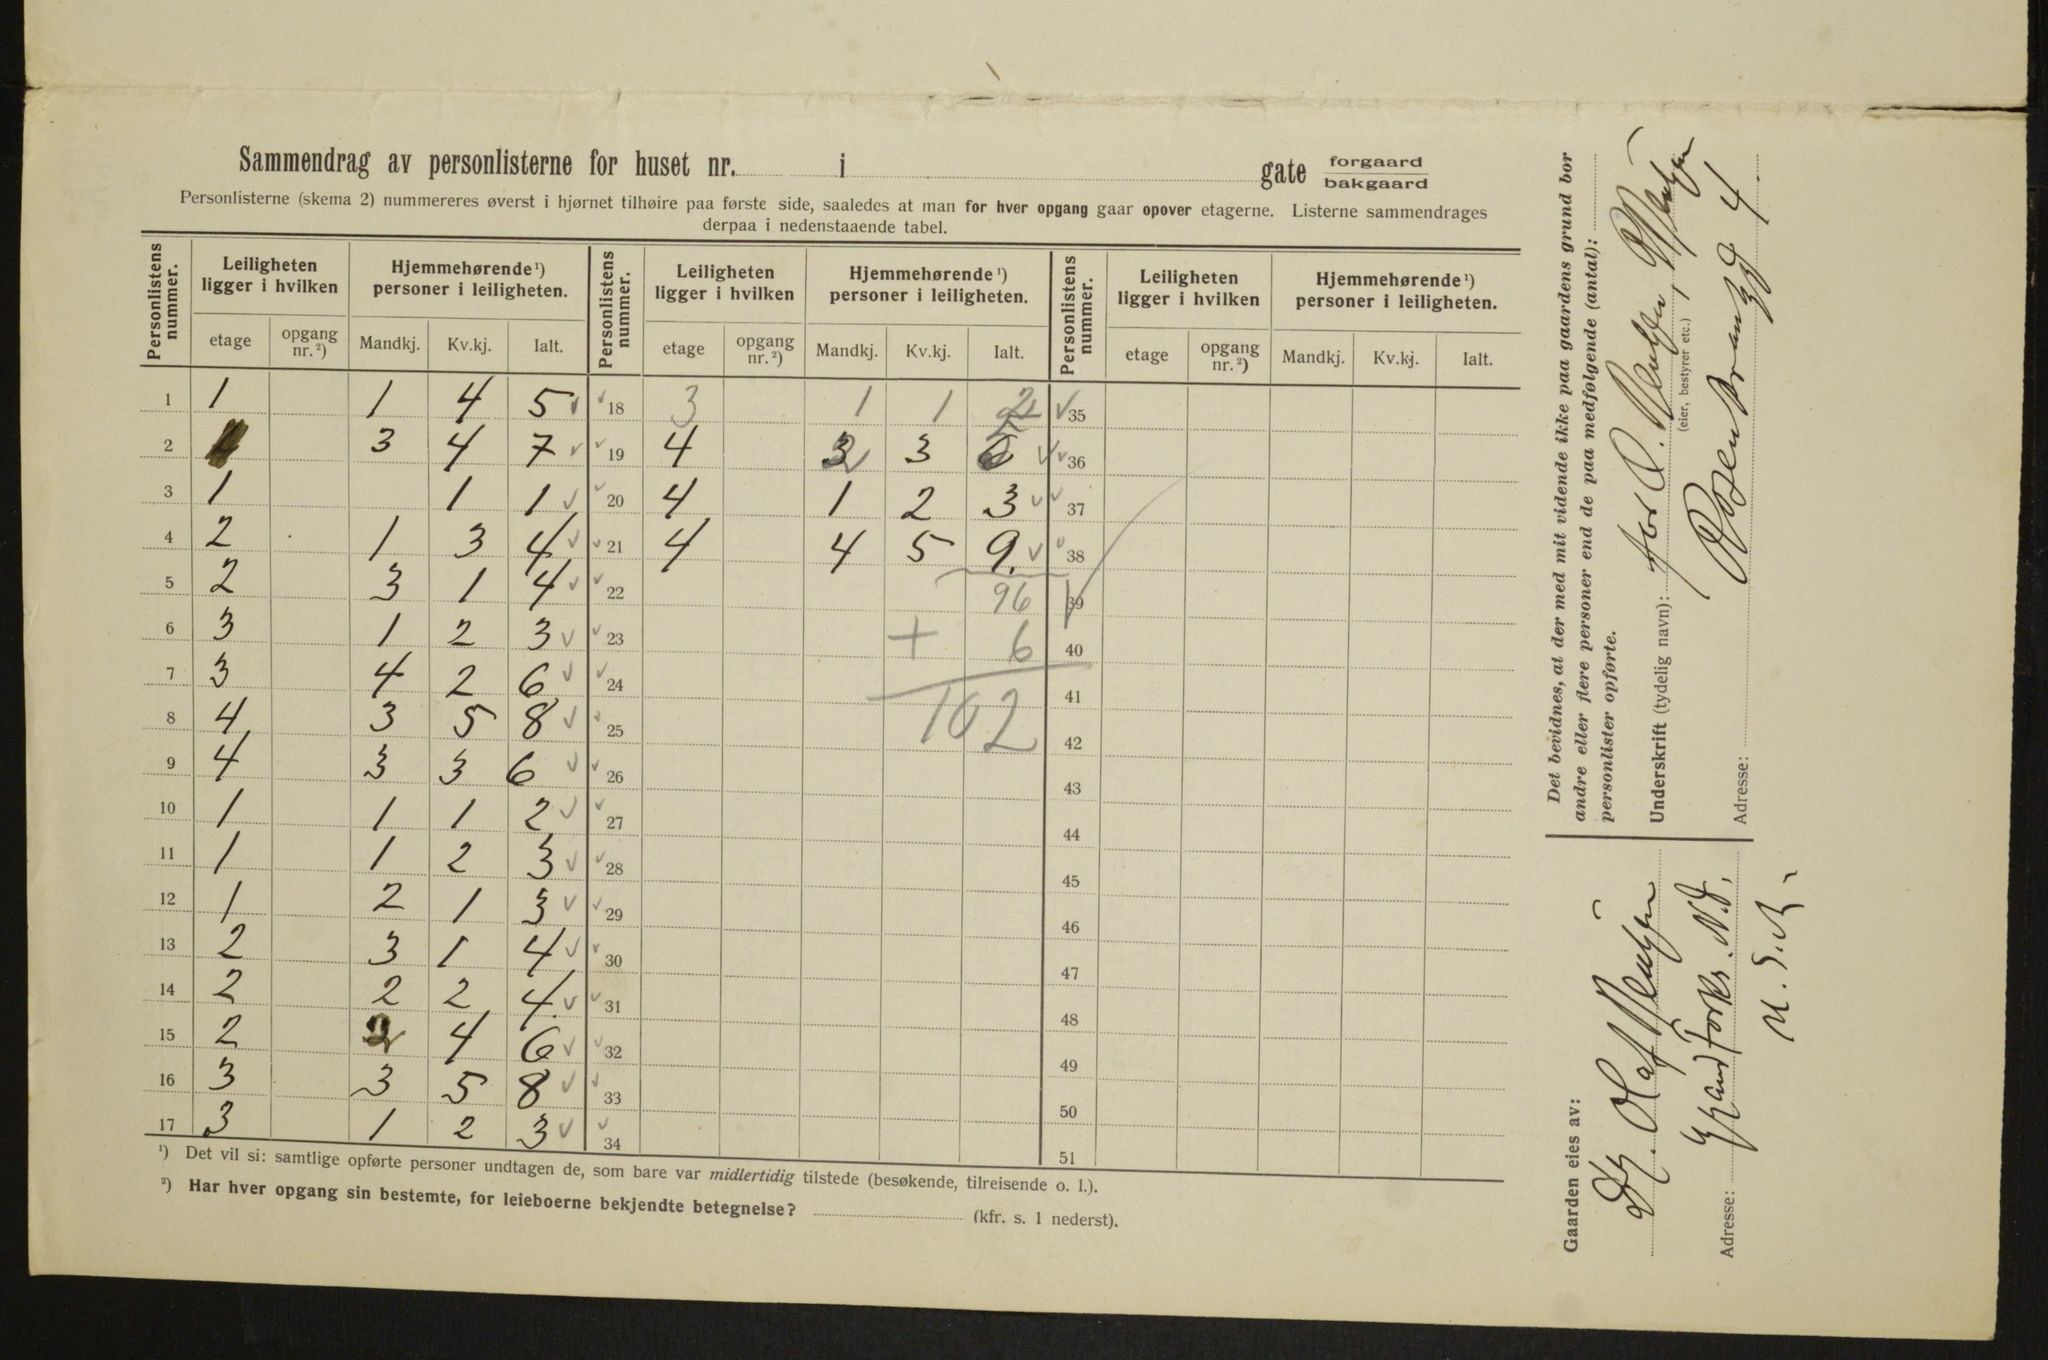 Sammendrag av personlisterne for huset nr. i gate forgaard bakgaard
Personlisterne (skema 2) nummereres øverst i hjørnet tilhøire paa første side, saaledes at man for hver opgang gaar opover etagerne. Listerne sammendrages
derpaa i nedenstaaende tabel.
Personlistens nummer. Leiligheten ligger i hvilken Hjemmehørende ¹) personer i leiligheten. Personlistens nummer. Leiligheten ligger i hvilken Hjemmehørende ¹) personer i leiligheten. Personlistens nummer. Leiligheten ligger i hvilken Hjemmehørende ¹) personer i leiligheten.
etage opgang nr. ²) Mandkj. Kv.kj. Ialt. etage opgang nr. ²) Mandkj. Kv.kj. Ialt. etage opgang nr. ²) Mandkj. Kv.kj. Ialt.
1 1 1 4 5 18 3 1 1 2 35
2 3 4 7 19 4 3 36
3 1 1 1 20 4 1 2 3 37
4 2 1 3 4 21 4 4 5 9. 38
5 2 3 1 4 22 96 39
6 3 1 2 3 23 + 6 40
7 3 4 2 6 24 102 41
8 4 3 5 8 25 42
9 4 3 3 6 26 43
10 1 1 1 2 27 44
11 1 1 2 3 28 45
12 1 2 1 3 29 46
13 2 3 1 4 30 47
14 2 2 2 4. 31 48
15 2 2 4 6 32 49
16 3 3 5 8 33 50
17 3 1 2 3 34 51
¹) Det vil si: samtlige opførte personer undtagen de, som bare var midlertidig tilstede (besøkende, tilreisende o. l.).
²) Har hver opgang sin bestemte, for leieboerne bekjendte betegnelse? (kfr. s. 1 nederst).
Det bevidnes, at der med mit vidende ikke paa gaardens grund bor
andre eller flere personer end de paa medfølgende (antal):
personlister opførte.
Underskrift (tydelig navn): for O.
(eier, bestyrer etc.)
Adresse: Rosenkranzgd 4.
Gaarden eies av:
Dr. Olaf
Adresse: Grand Forks. N.d.
U.S.A.